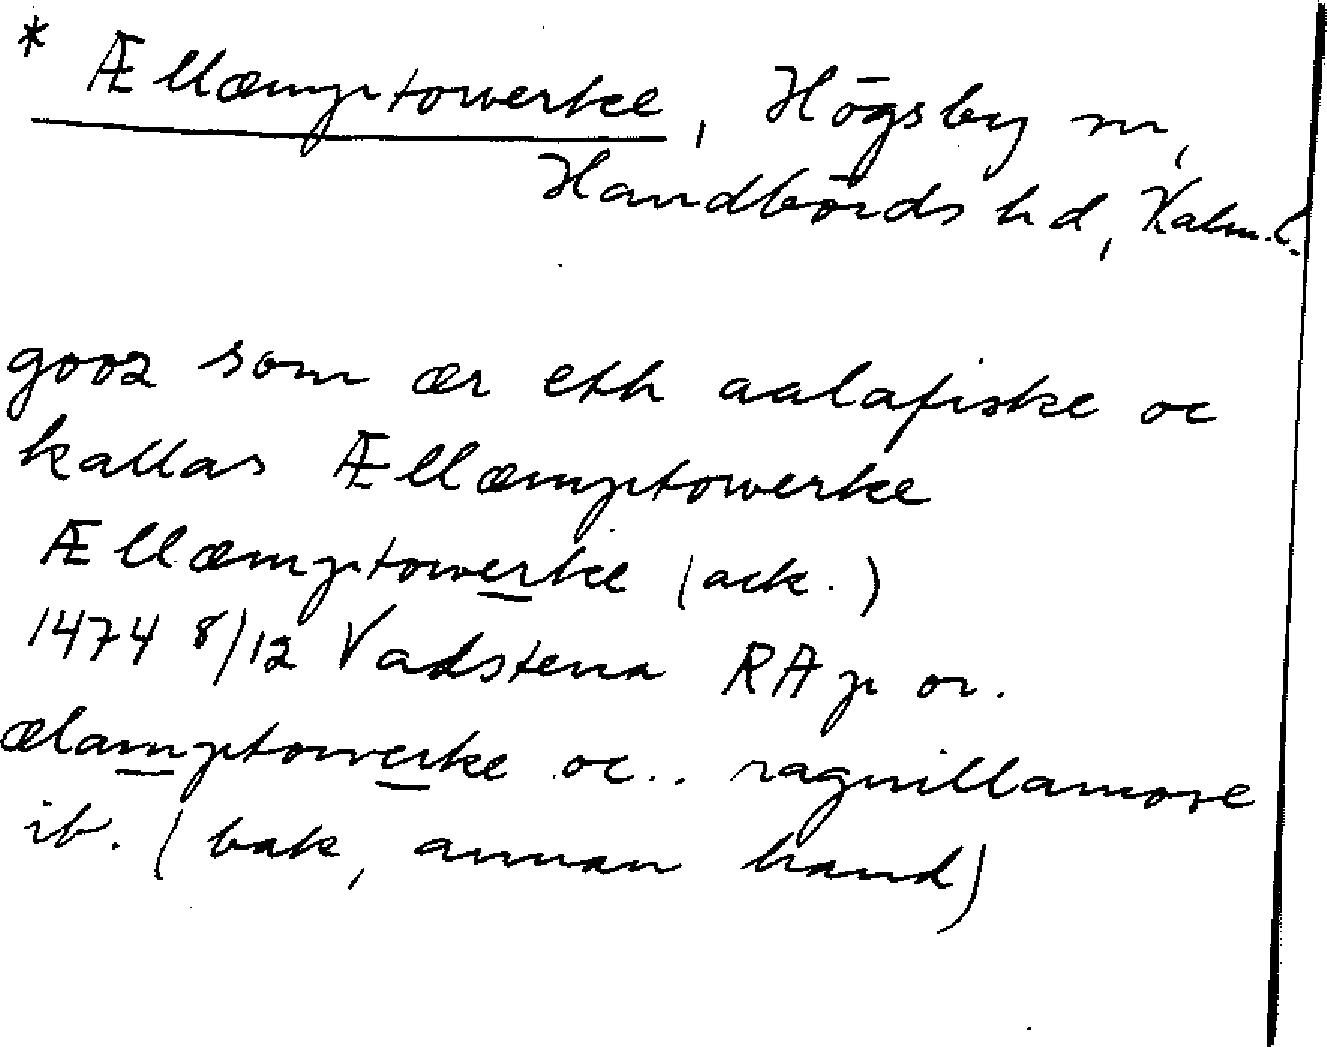 * Ællæmptowerke, Högsby sn,
Handbörds hd, Kalm. l.
gooz som ær eth aalafiske oc
kallas Ællæmptowerke
Ællæmptowerke (ack.)
1474 8/12 Vadstena RAp or.
ælamptowerke oc.. ragnillamore
ib. (bak, annan hand)